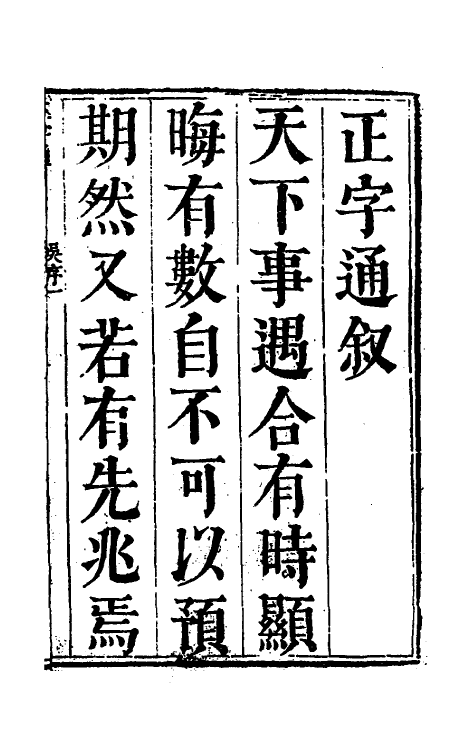 正字通叙
天下事遇合有時顯
晦有數自不可以預
期然又若有先兆焉
吳序一